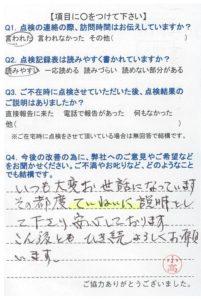 【項目に○をつけて下さい】
Q1. 点検の連絡の際、訪問時間はお伝えしていますか?
言われた 言われなかった その他( )
Q2. 点検記録表は読みやすく書かれていますか?
読みやすい 一応読める 読みづらい 読めない部分がある
Q3. ご不在時に点検させていただいた後、点検結果の
ご説明はありましたか?
直接報告に来た 電話で報告があった 何もなかった
他( )
※ご在宅時に点検をさせて頂いている場合は無回答で結構です。
Q4. 今後の改善の為に、弊社へのご意見やご希望など
をお聞かせください。ご不満やお叱りなど、どのようなこと
でも結構です。
いつも大変お世話になっています
その都度、ていねいに説明をし
て下さり安心しております
こん後とも ひき続きよろしくお願
います。
小高
ご協力ありがとうございました。